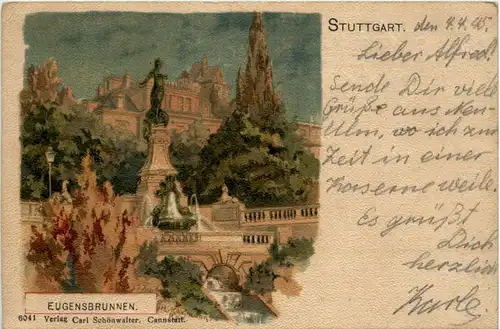 STUTTGART. den 4.4.05.
Lieber Alfred.
Sende Dir viele
Grüße aus Neu-
ulm, wo ich zur
Zeit in einer
Kaserne weile.
Es grüßt
Dich
herzlich
Karle.
EUGENSBRUNNEN.
6041 Verlag Carl Schönwalter. Cannstatt.